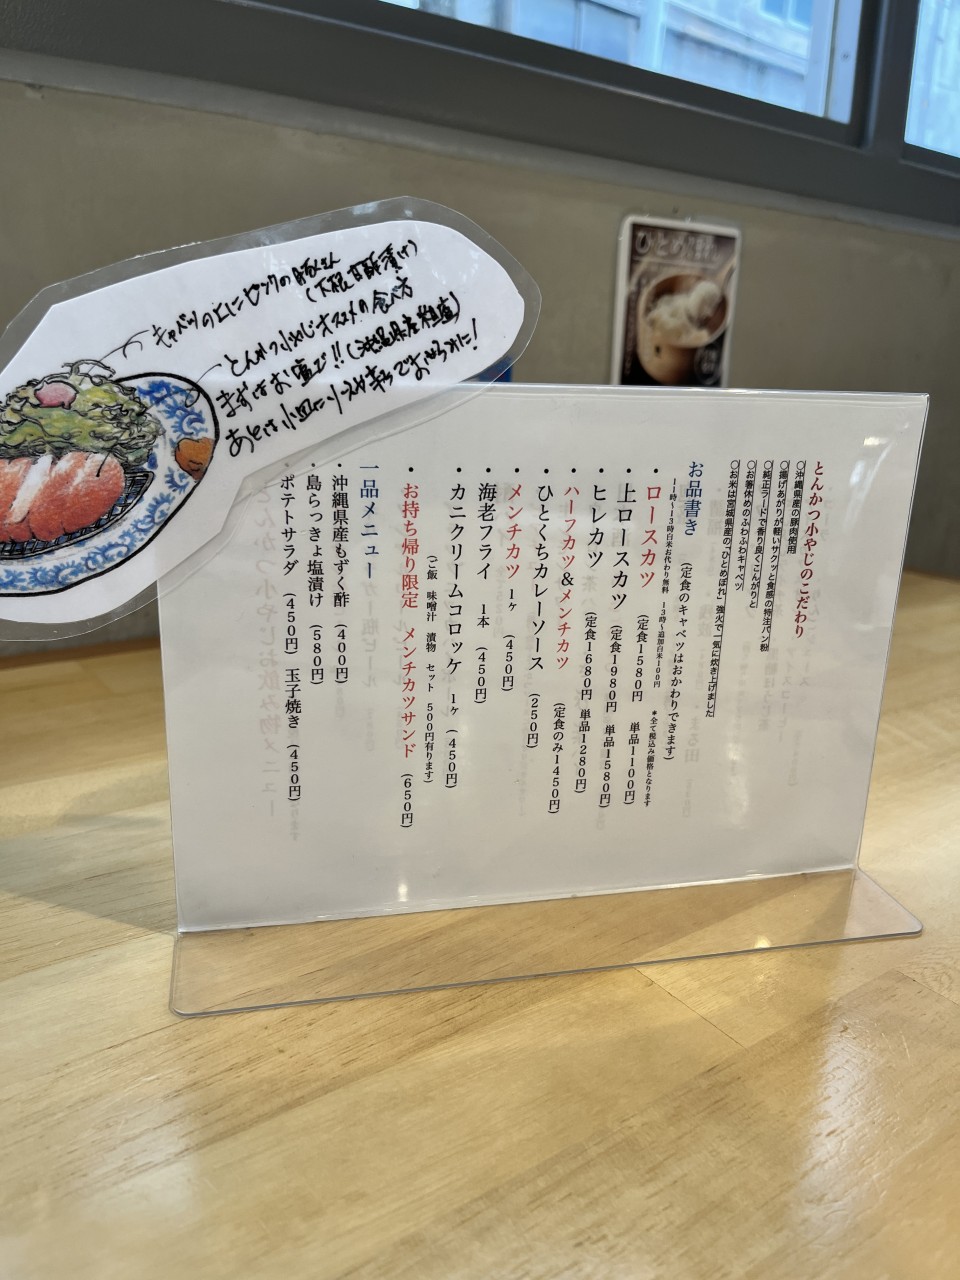 とんかつ小やじのこだわり
○沖縄県産の豚肉使用
○揚げあがりが軽いサクッと食感の特注パン粉
○純正ラードで香り良くこんがりと
○お箸休めのふわふわキャベツ
○お米は宮城県産の「ひとめぼれ」強火で一気に炊き上げました
お品書き (定食のキャベツはおかわりできます)
11時~13時白米お代わり無料 13時~追加白米100円 *全て税込み価格となります
・ロースカツ (定食1580円 単品1100円)
・上ロースカツ (定食1980円 単品1580円)
・ヒレカツ (定食1680円 単品1280円)
・ハーフカツ&メンチカツ (定食のみ1450円)
・ひとくちカレーソース (250円)
・メンチカツ 1ヶ (450円)
・海老フライ 1本 (450円)
・カニクリームコロッケ 1ヶ (450円)
(ご飯 味噌汁 漬物 セット 500円有ります)
・お持ち帰り限定 メンチカツサンド (650円)
一品メニュー
・沖縄県産もずく酢 (400円)
・島らっきょ塩漬け (580円)
・ポテトサラダ (450円) 玉子焼き (450円)
キャベツの上にピンクの豚さん
(大根甘酢漬け)
とんかつ小やじオススメの食べ方
まずはお塩で!!(沖縄県産粗塩)
あとは小皿に
ひとめぼれ